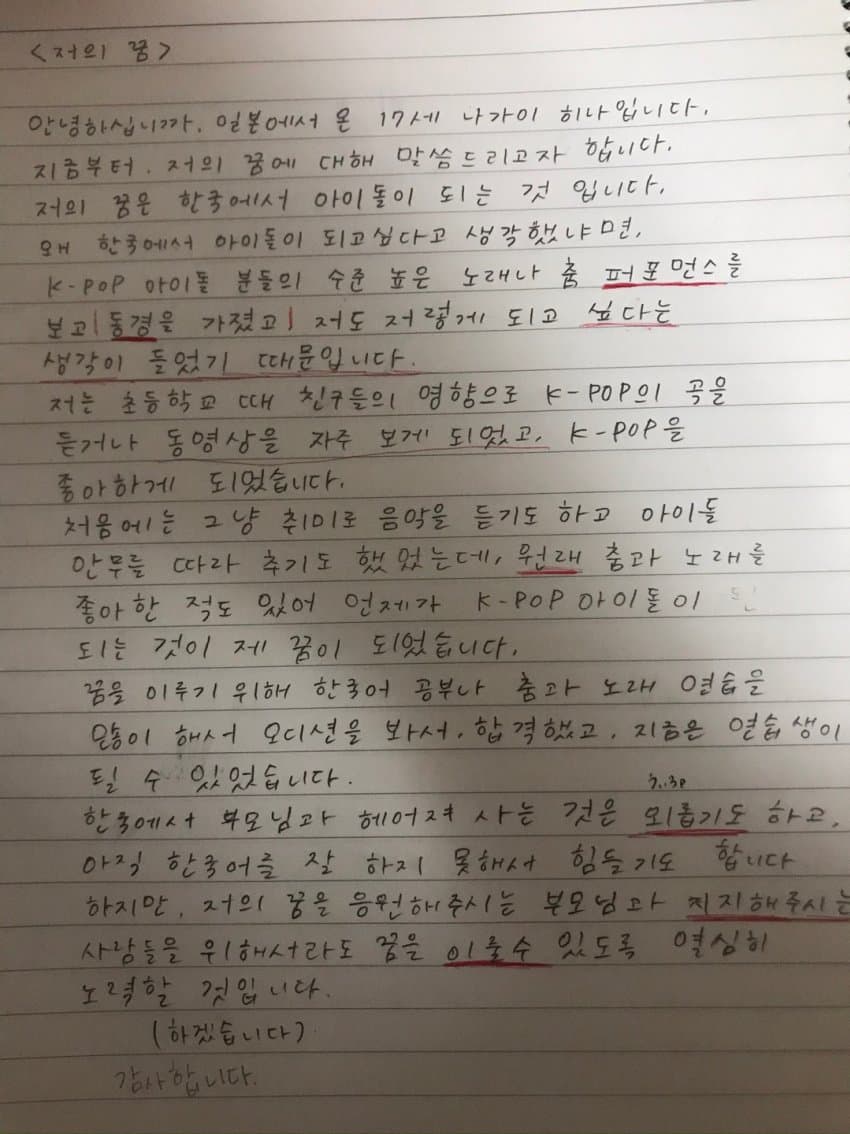 <저의 꿈>
안녕하십니까. 일본에서 온 17세 나가이 히나입니다.
지금부터. 저의 꿈에 대해 말씀드리고자 합니다.
저의 꿈은 한국에서 아이돌이 되는 것 입니다.
왜 한국에서 아이돌이 되고싶다고 생각했냐면,
K-POP 아이돌 분들의 수준 높은 노래나 춤 퍼포먼스를
보고 동경을 가졌고 저도 저렇게 되고 싶다는
생각이 들었기 때문입니다.
저는 초등학교 때 친구들의 영향으로 K-POP의 곡을
듣거나 동영상을 자주 보게 되었고, K-POP을
좋아하게 되었습니다.
처음에는 그냥 취미로 음악을 듣기도 하고 아이돌
안무를 따라 추기도 했었는데, 원래 춤과 노래를
좋아한 적도 있어 언제가 K-POP 아이돌이
되는 것이 제 꿈이 되었습니다.
꿈을 이루기 위해 한국어 공부나 춤과 노래 연습을
많이 해서 오디션을 봐서. 합격했고. 지금은 연습생이
될 수 있었습니다.
한국에서 부모님과 헤어져 사는 것은 외롭기도 하고,
아직 한국어를 잘 하지 못해서 힘들기도 합니다
하지만, 저의 꿈을 응원해주시는 부모님과 지지해주시는
사람들을 위해서라도 꿈을 이룰수 있도록 열심히
노력할 것입니다.
(하겠습니다)
감사합니다.